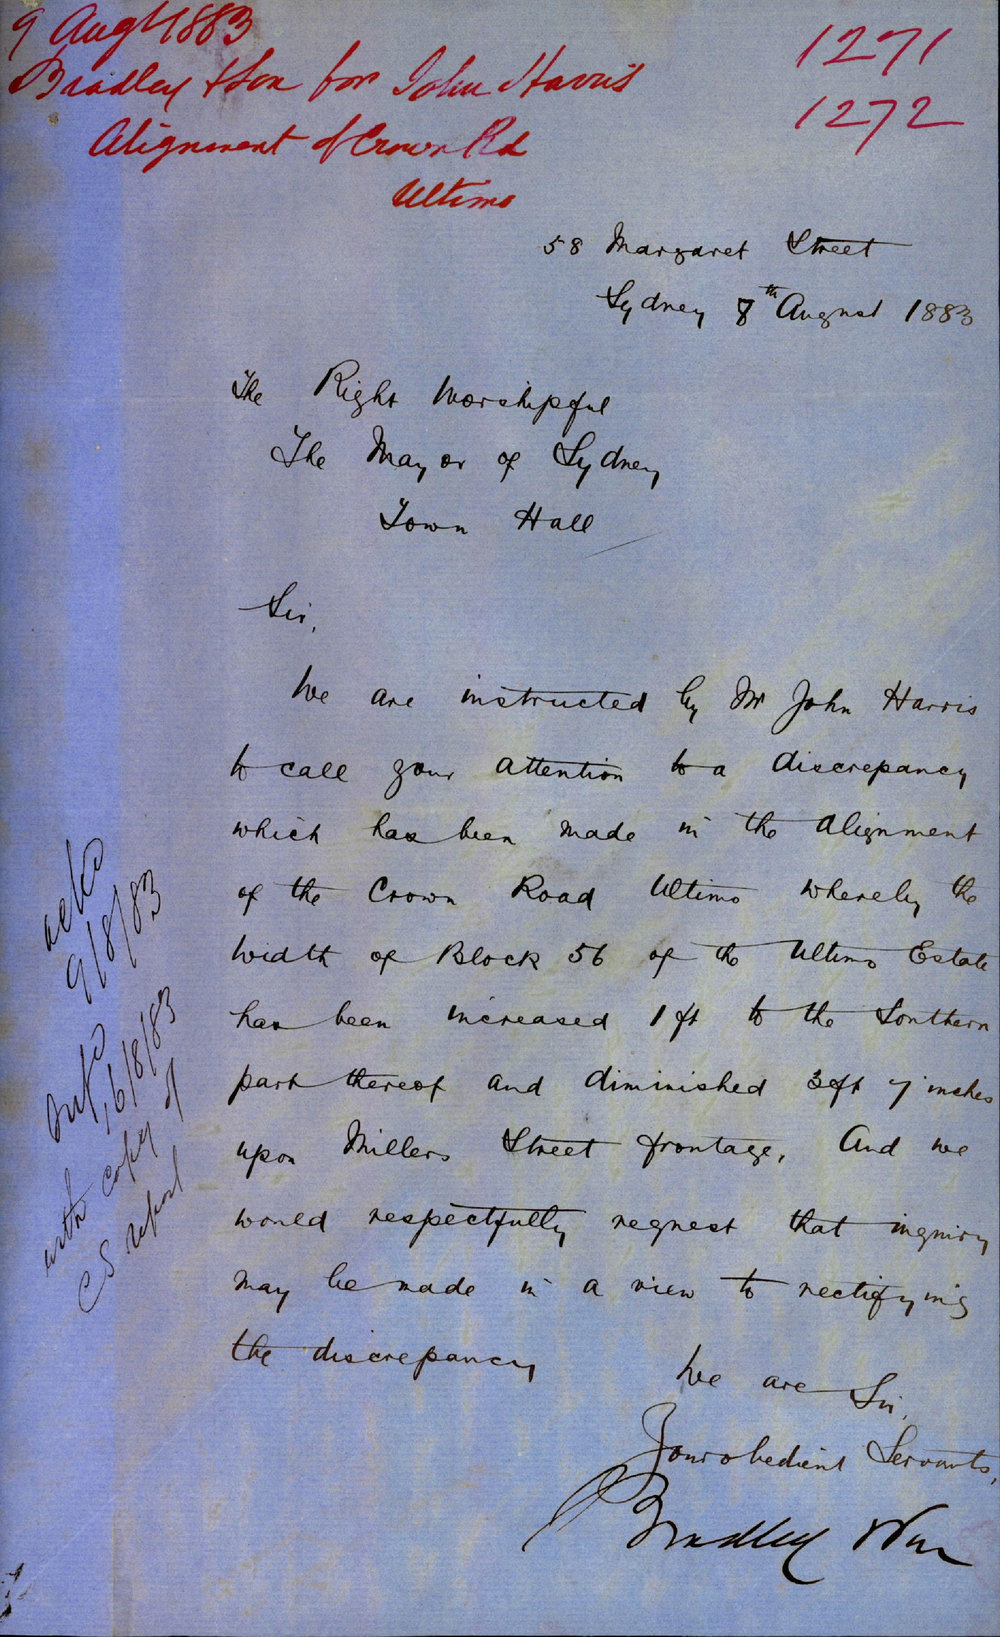 9 Augt 1883
Bradley & Son for John Harris
Alignment of Crown Rd
Ultimo
1271
1272
58 Margaret Street
Sydney 8th August 1883
The Right Worshipful
The Mayor of Sydney
Town Hall
Sir,
We are instructed by Mr John Harris
to call your attention to a discrepancy
which has been made in the alignment
of the Crown Road Ultimo whereby the
width of Block 56 of the Ultimo Estate
has been increased 1 ft to the Southern
part thereof and diminished 3 ft 7 inches
upon Millers Street frontage, And we
would respectfully request that inquiry
may be made in a view to rectifying
the discrepancy
We are Sir,
Your obedient Servants,
Bradley & Son
ackd
9/8/83
Infd
16/8/83
with copy of
CS report